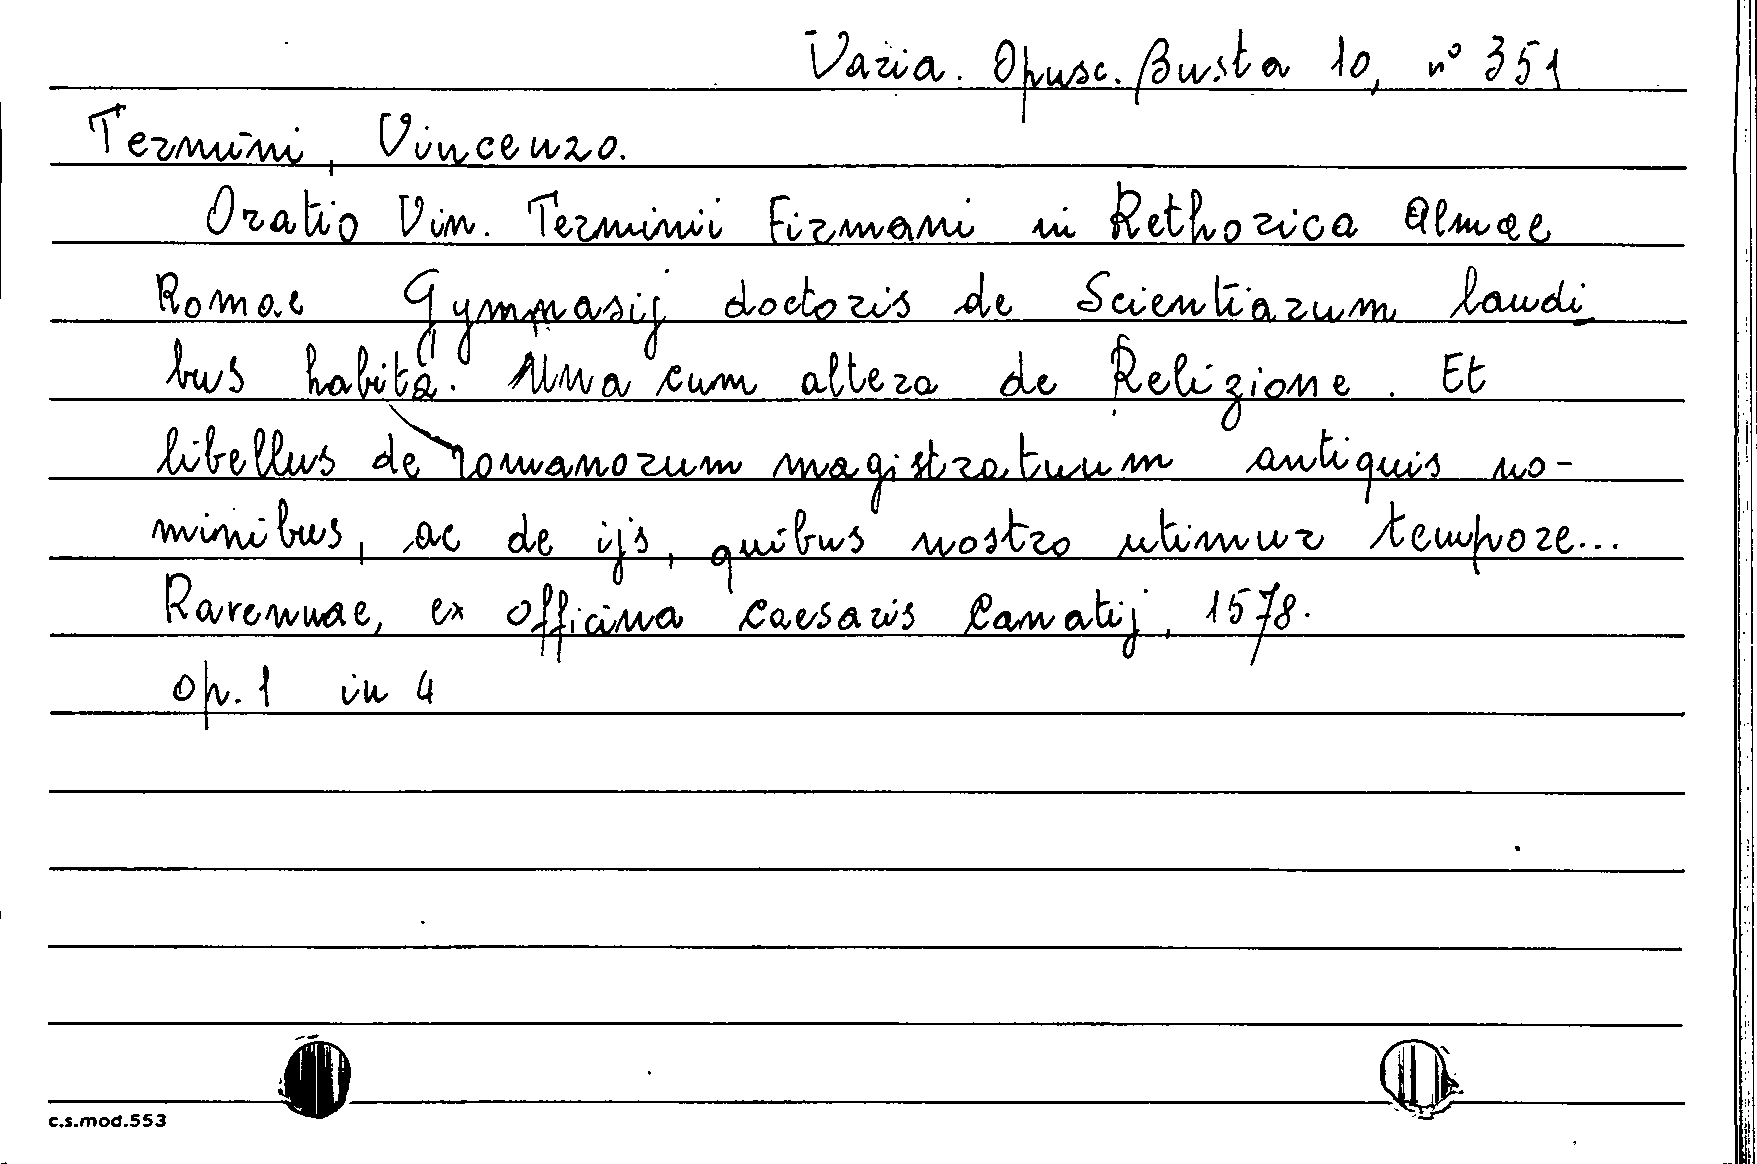 Varia. Opusc. Busta 10, n° 351
Termini, Vincenzo.
Oratio Vin. Terminii Firmani in Rethorica Almae
Romae Gymnasij doctoris de Scientiarum laudi
bus habita. Una cum altera de Religione. Et
libellus de romanorum magistratuum antiquis no-
minibus, ac de ijs, quibus nostro utimur tempore...
Ravennae, ex officina Caesaris Camatij, 1578.
op. 1 in 4
c.s.mod.553